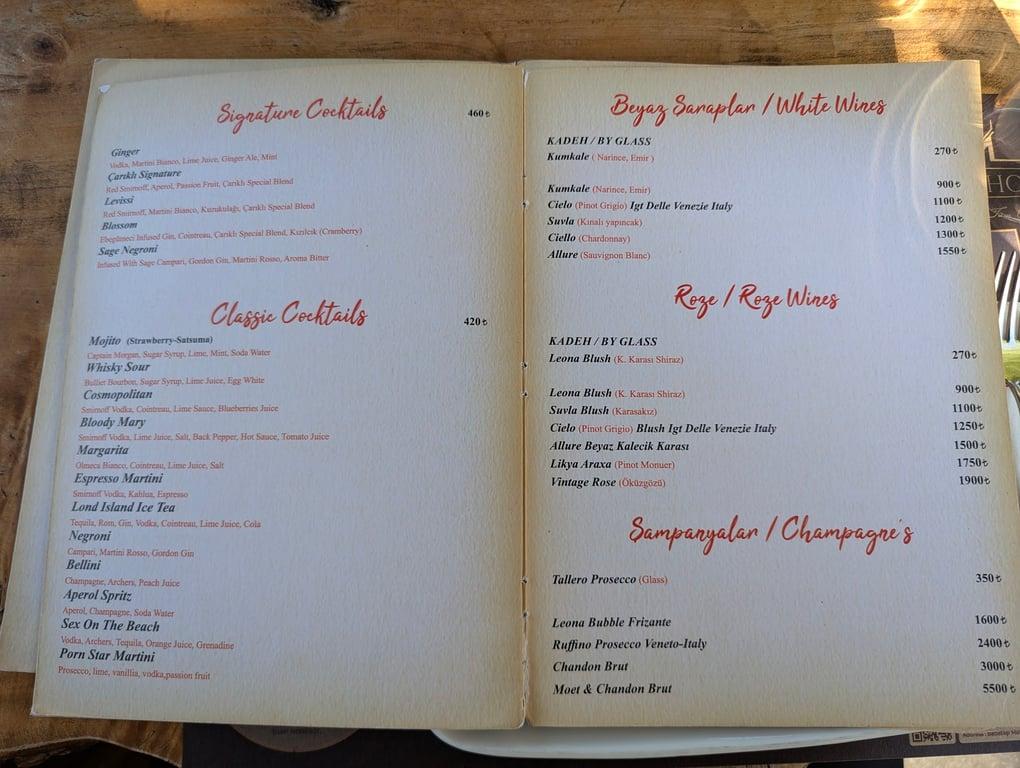 Signature Cocktails 460₺
Ginger
Vodka, Martini Bianco, Lime Juice, Ginger Ale, Mint
Çarıklı Signature
Red Smirnoff, Aperol, Passion Fruit, Çarıklı Special Blend
Levissi
Red Smirnoff, Martini Bianco, Kuzukulağı, Çarıklı Special Blend
Blossom
Ebegümeci Infused Gin, Cointreau, Çarıklı Special Blend, Kızılcık (Cramberry)
Sage Negroni
Infused With Sage Campari, Gordon Gin, Martini Rosso, Aroma Bitter
Classic Cocktails 420₺
Mojito (Strawberry-Satsuma)
Captain Morgan, Sugar Syrup, Lime, Mint, Soda Water
Whisky Sour
Bulliet Bourbon, Sugar Syrup, Lime Juice, Egg White
Cosmopolitan
Smirnoff Vodka, Cointreau, Lime Sauce, Blueberries Juice
Bloody Mary
Smirnoff Vodka, Lime Juice, Salt, Back Pepper, Hot Sauce, Tomato Juice
Margarita
Olmeca Bianco, Cointreau, Lime Juice, Salt
Espresso Martini
Smirnoff Vodka, Kahlua, Espresso
Lond Island Ice Tea
Tequila, Rom, Gin, Vodka, Cointreau, Lime Juice, Cola
Negroni
Campari, Martini Rosso, Gordon Gin
Bellini
Champagne, Archers, Peach Juice
Aperol Spritz
Aperol, Champagne, Soda Water
Sex On The Beach
Vodka, Archers, Tequila, Orange Juice, Grenadine
Porn Star Martini
Prosecco, lime, vanillia, vodka,passion fruit
Beyaz Şaraplar / White Wines
KADEH / BY GLASS
Kumkale ( Narince, Emir ) 270₺
Kumkale (Narince, Emir) 900₺
Cielo (Pinot Grigio) Igt Delle Venezie Italy 1100₺
Suvla (Kınalı yapıncak) 1200₺
Ciello (Chardonnay) 1300₺
Allure (Sauvignon Blanc) 1550₺
Roze / Roze Wines
KADEH / BY GLASS
Leona Blush (K. Karası Shiraz) 270₺
Leona Blush (K. Karası Shiraz) 900₺
Suvla Blush (Karasakız) 1100₺
Cielo (Pinot Grigio) Blush Igt Delle Venezie Italy 1250₺
Allure Beyaz Kalecik Karası 1500₺
Likya Araxa (Pinot Monuer) 1750₺
Vintage Rose (Öküzgözü) 1900₺
Şampanyalar / Champagne's
Tallero Prosecco (Glass) 350₺
Leona Bubble Frizante 1600₺
Ruffino Prosecco Veneto-Italy 2400₺
Chandon Brut 3000₺
Moet & Chandon Brut 5500₺